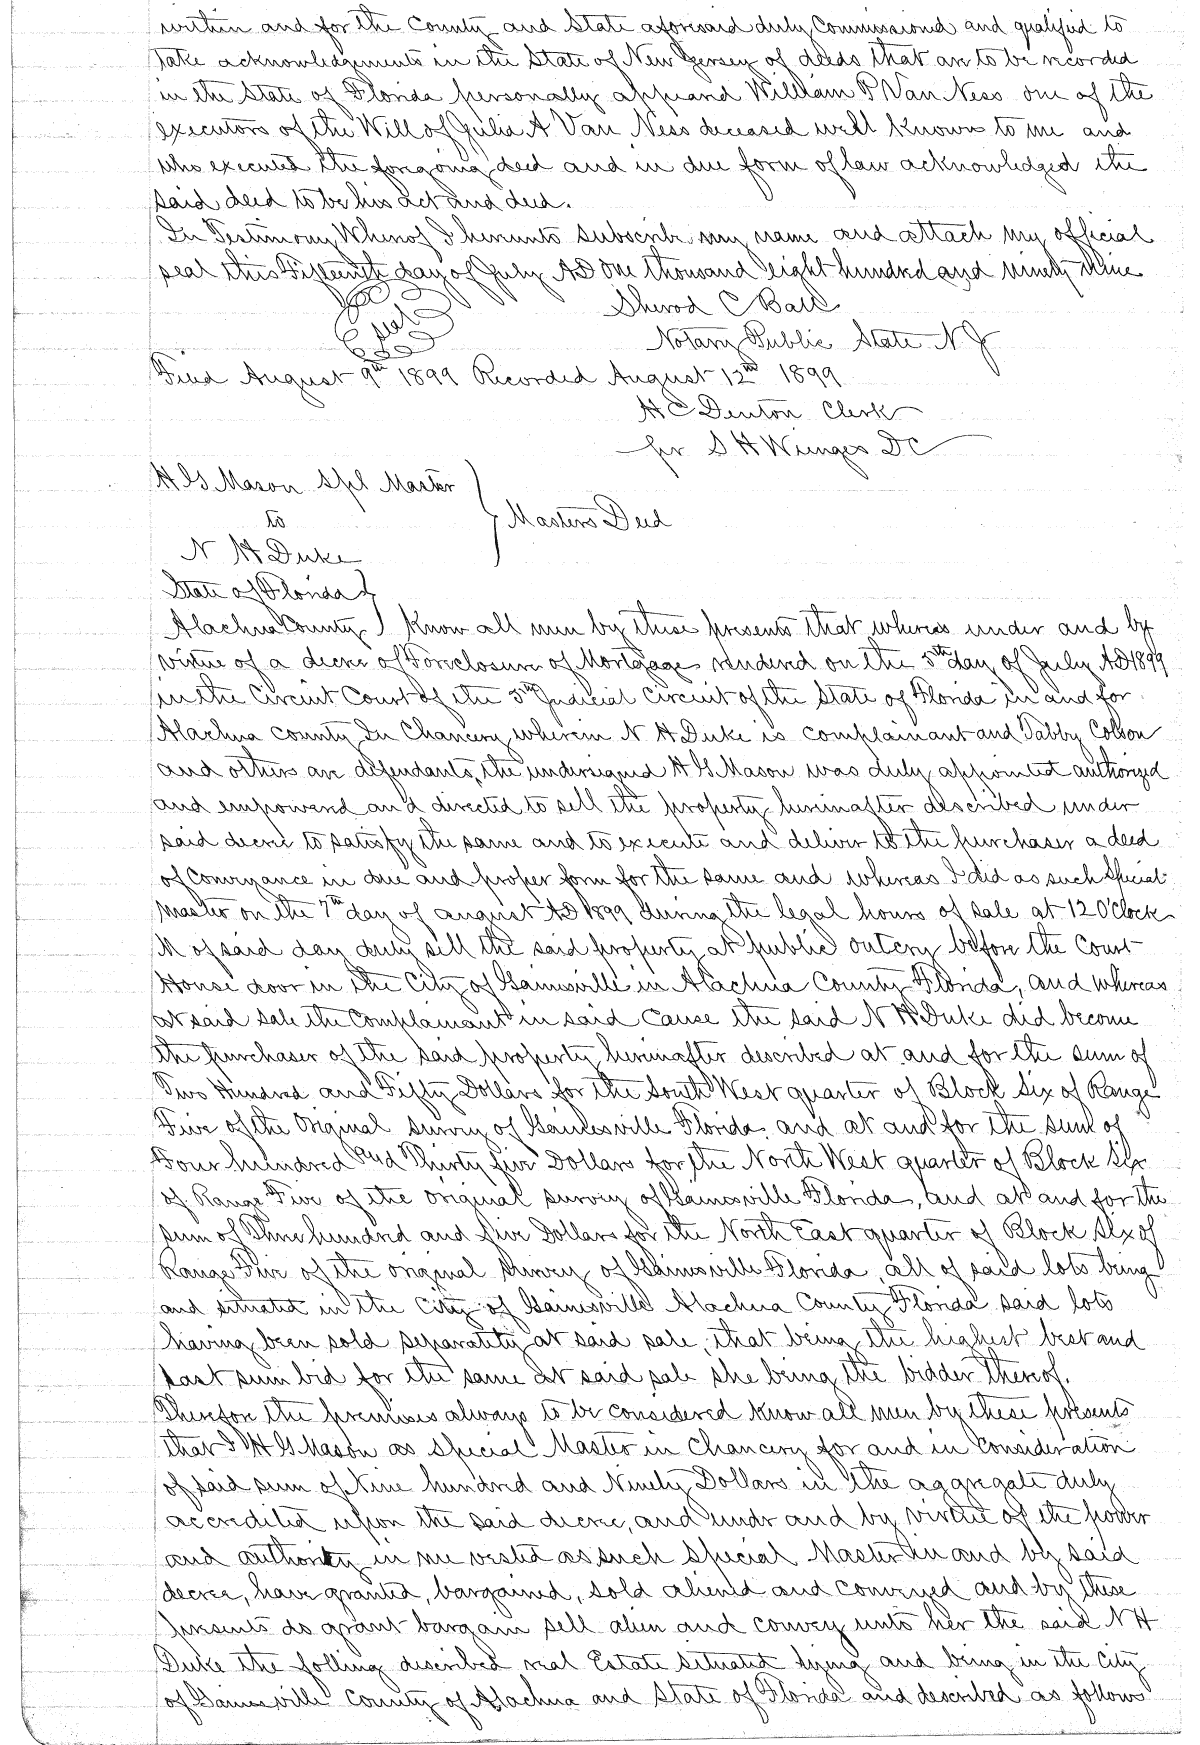 within and for the County and State aforesaid duly Commissioned and qualified to
take acknowledgements in the State of New Jersey of deeds that are to be recorded
in the State of Florida personally appeared William P Van Ness one of the
executors of the Will of Julia A Van Ness deceased well known to me and
who executed the foregoing deed and in due form of law acknowledged the
said deed to be his act and deed.
In Testimony Whereof I hereunto subscribe my name and attach my official
seal this Fifteenth day of July AD One thousand eight hundred and ninety nine
Sherod C Ball
seal
Notary Public State N J
Filed August 9th 1899 Recorded August 12th 1899
H C Denton Clerk
per S H Wienges DC
H G Mason Spl Master
to
Masters Deed
N H Duke
State of Florida
Alachua County Know all men by these presents that whereas under and by
virtue of a decree of Foreclosure of Mortgage rendered on the 5th day of July AD 1899
in the Circuit Court of the 5th Judicial Circuit of the State of Florida in and for
Alachua County In Chancery wherein N H Duke is complainant and Tabby Colson
and others are defendants, the undersigned H G Mason was duly appointed authorized
and empowered and directed to sell the property hereinafter described under
said decree to satisfy the same and to execute and deliver to the purchaser a deed
of Conveyance in due and proper form for the same and whereas I did as such Special
Master on the 7th day of August AD 1899 during the legal hours of sale at 12 O'Clock
M of said day duly sell the said property at public outcry before the Court
House door in the City of Gainesville in Alachua County Florida, and whereas
at said sale the Complainant in said cause the said N H Duke did become
the purchaser of the said property hereinafter described at and for the sum of
Two Hundred and Fifty Dollars for the South West quarter of Block Six of Range
Five of the Original survey of Gainesville Florida, and at and for the sum of
Four hundred And Thirty five Dollars for the North West quarter of Block Six
of Range Five of the original survey of Gainesville Florida, and at and for the
sum of Three hundred and five Dollars for the North East quarter of Block Six of
Range Five of the original Survey of Gainesville Florida, all of said lots being
and situated in the City of Gainesville Alachua County Florida said lots
having been sold separately at said sale, that being the highest best and
last sum bid for the same at said sale she being the bidder thereof.
Therefore the premises always to be considered Know all men by these presents
that I H G Mason as Special Master in Chancery for and in Consideration
of said sum of Nine hundred and Ninety Dollars in the aggregate duly
accredited upon the said decree, and under and by virtue of the power
and authority in me vested as such Special Master in and by said
decree, have granted, bargained, sold aliened and conveyed and by these
presents do grant bargain sell alien and convey unto her the said N H
Duke the folling described real Estate situated lying and being in the City
of Gainesville County of Alachua and State of Florida and described as follows